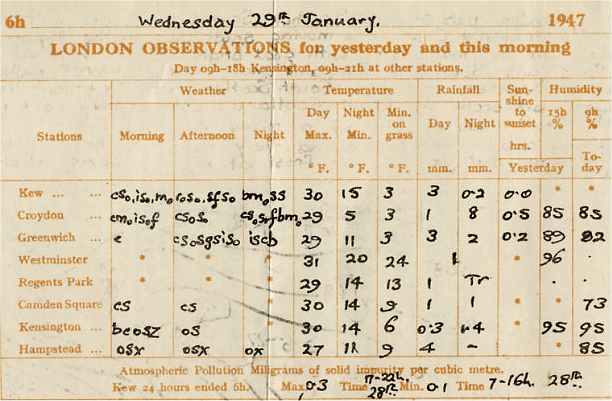 6h Wednesday 29th January. 1947
LONDON OBSERVATIONS, for yesterday and this morning
Day 09h–18h Kensington, 09h–21h at other stations.
Weather Temperature Rainfall Sun- Humidity
Stations Morning Afternoon Night Day Night Min. Day Night shine 15h 9h
Max. Min. on to % %
grass sunset
hrs. To-
° F. ° F. ° F. mm. mm. Yesterday day
Kew ... ... 30 15 3 3 0.2 0.0 * *
Croydon ... 29 5 3 1 8 0.5 85 85
Greenwich ... e iscb 29 11 3 3 2 0.2 89 82
Westminster * * * 31 20 24 * 96 .
Regents Park * * * 29 14 13 1 Tr * . .
Camden Square cs cs * 30 14 9 1 1 * * 73
Kensington ... beosz os * 30 14 6 0.3 * 95 95
Hampstead ... osx osx ox 27 11 9 4 - * 85
Atmospheric Pollution Miligrams of solid impurity per cubic metre.
Kew 24 hours ended 6h. Max 0.3 Time 17-22h. 28th. Min. 0.1 Time 7-16h. 28th.